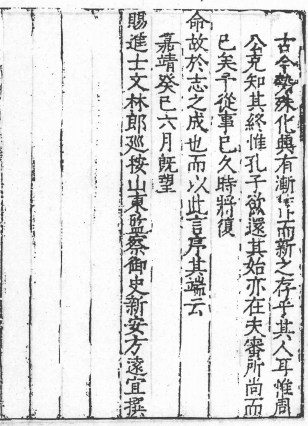 古今勢殊化與有漸而新之存乎其人耳惟周
公克知其終惟孔子欲還其始亦在夫審所尚而
已矣予從事已久時將復
命故於志之成也而以此言序其端云
嘉靖癸巳六月既望
賜進士文林郎廵按山東監察御史新安方遠宜撰